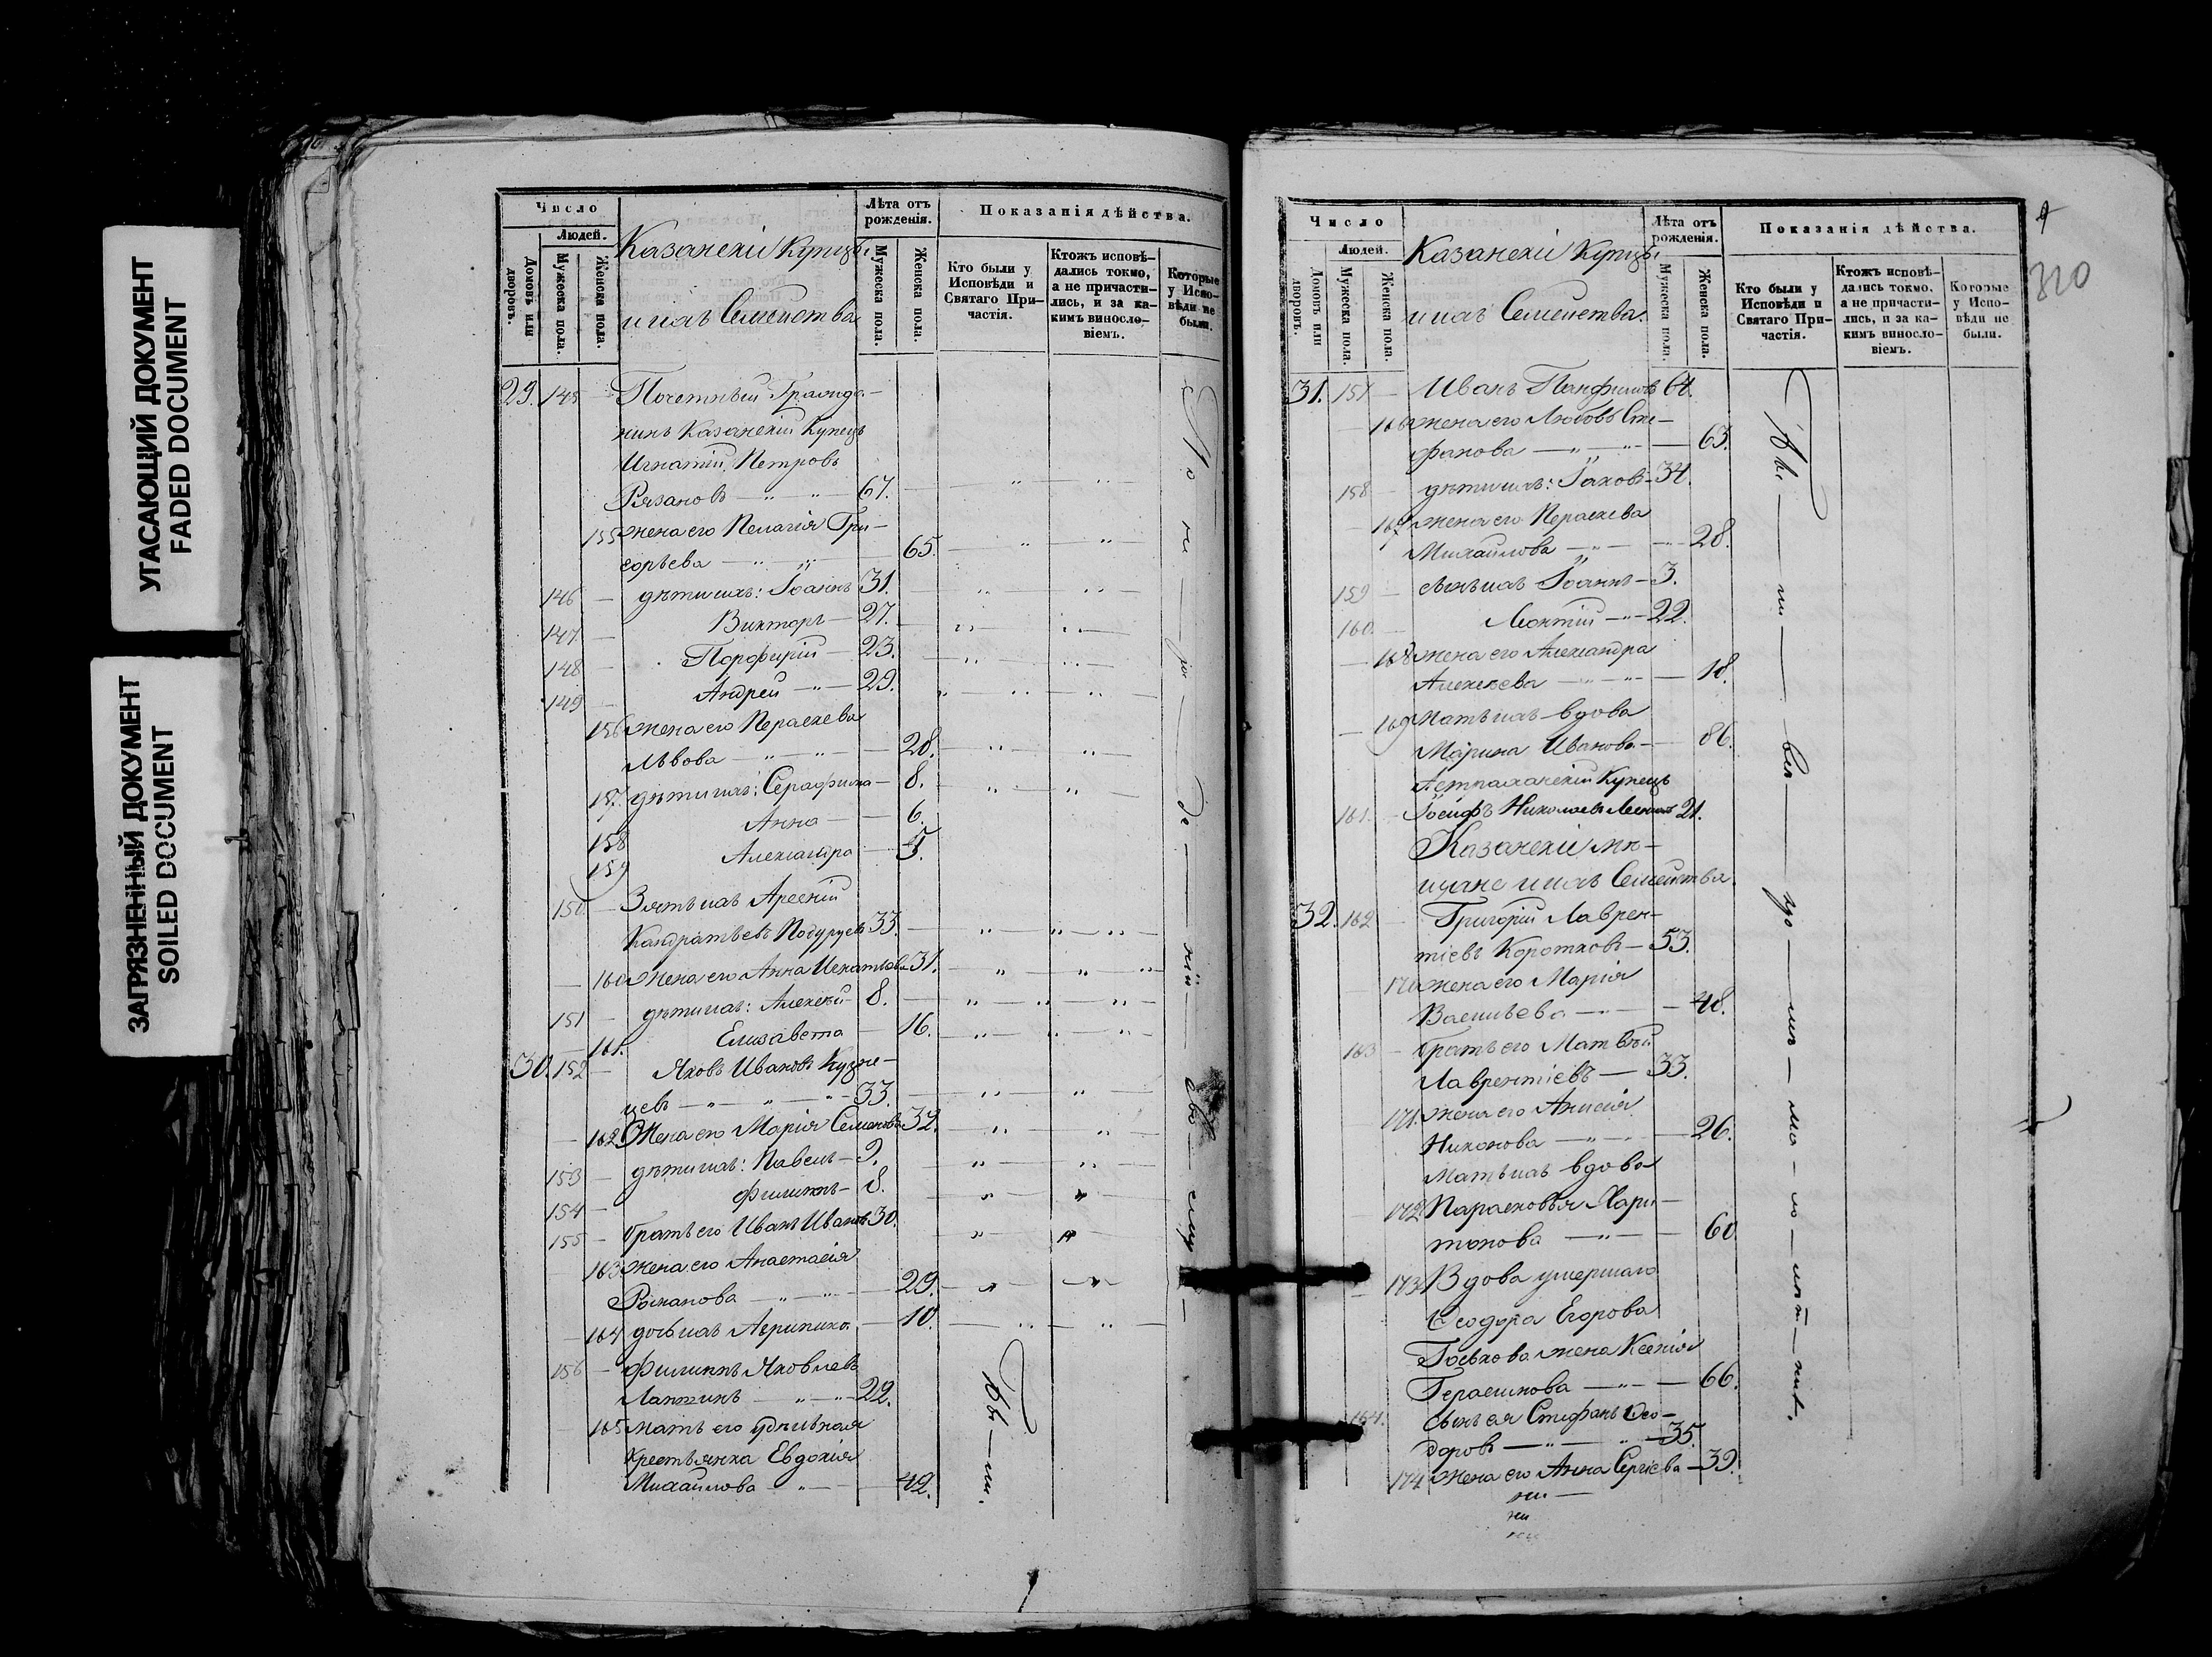 УГАСАЮЩИЙ ДОКУМЕНТ
FADED DOCUMENT
ЗАГРЯЗНЕННЫЙ ДОКУМЕНТ
SOILED DOCUMENT
Число
Людей.
Домовъ или дворовъ.
Мужеска пола.
Женска пола.
Казанскіи Купцы
и ихъ Семейства
Лѣта отъ рожденія.
Мужеска пола.
Женска пола.
Показанія дѣйства.
Кто были у Исповѣди и Святаго Причастія.
Ктожъ исповѣдались токмо, а не причастились, и за какимъ винословіемъ.
Которые у Исповѣди не были.
29. 145 — Почетный Гражда-
нинъ Казанскій Купецъ
Игнатій Петровъ
Рязановъ — 67.
155 жена его Пелагія Гри-
горьева — 65.
146 — дѣти ихъ: Іоаннъ 31.
147 — Викторъ — 27.
148 — Порфирій — 23.
149 — Андрей — 29.
156 жена его Параскева
Львова — 28.
157. дѣти ихъ: Серафима — 8.
158 Анна — 6.
159 Александра — 5.
150 — Зять ихъ Арсеній
Кандратьевъ 33.
160 жена его Анна Игнатьева 31.
151 — дѣти ихъ: Алексѣй — 8.
161. Елизавета — 16.
30. 152 — Яковъ Ивановъ Кузне-
цевъ — 33.
162 Жена его Марія Семенова 32.
153 — дѣти ихъ: Павелъ — 9.
154 — Филиппъ — 8.
155 — братъ его Иванъ Ивановъ 30.
163 жена его Анастасія
Романова — 29.
164 дочь ихъ Агрипина — 10.
156 — Филиппъ Яковлевъ
Лаптинъ — 22.
165 мать его удѣльная
Крестьянка Евдокія
Михайлова — 42.
Бы — ли.
Число
Людей.
Домовъ или дворовъ.
Мужеска пола.
Женска пола.
Казанскіи Купцы
и ихъ Семейства.
Лѣта отъ рожденія.
Мужеска пола.
Женска пола.
Показанія дѣйства.
Кто были у Исповѣди и Святаго Причастія.
Ктожъ исповѣдались токмо, а не причастились, и за какимъ винословіемъ.
Которые у Исповѣди не были.
310
31. 157 — Иванъ Панфиловъ 64.
166 жена его Любовь Сте-
фанова — 63.
158 — дѣти ихъ: Іаковъ — 34.
167 жена его Параскева
Михайлова — 28.
159 — сынъ ихъ Іоаннъ — 3.
160. — Леонтій — 22.
168 жена его Александра
Алексѣева — 18.
169 Мать ихъ вдова
Марина Иванова — 86.
Астраханскій Купецъ
161. — Іосифъ Николаевъ 21.
Казанскіи мѣ-
щане и ихъ Семейства.
32. 162 — Григорій Лаврен-
тіевъ Коротковъ — 53.
170 жена его Марія
Васильева — 48.
163 — братъ его Матвѣй
Лаврентіевъ — 33.
171. жена его Анисія
Никонова — 26.
Мать ихъ вдова
172 Парасковья Хари-
тонова — 60
173 Вдова умершаго
Ѳеодора Егорова
жена Ксенія
Герасимова — 66.
164. сынъ ея Стефанъ Ѳео-
доровъ — 35.
174 жена его Анна Сергіева — 39.